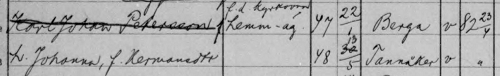 Karl Johan Petersson f. d. Kyrkovärd hemm.-äg. 47 22/1 Berga v 82 23/4
h. Johanna, f. Hermansdtr 48 13/5 Tannåker v "